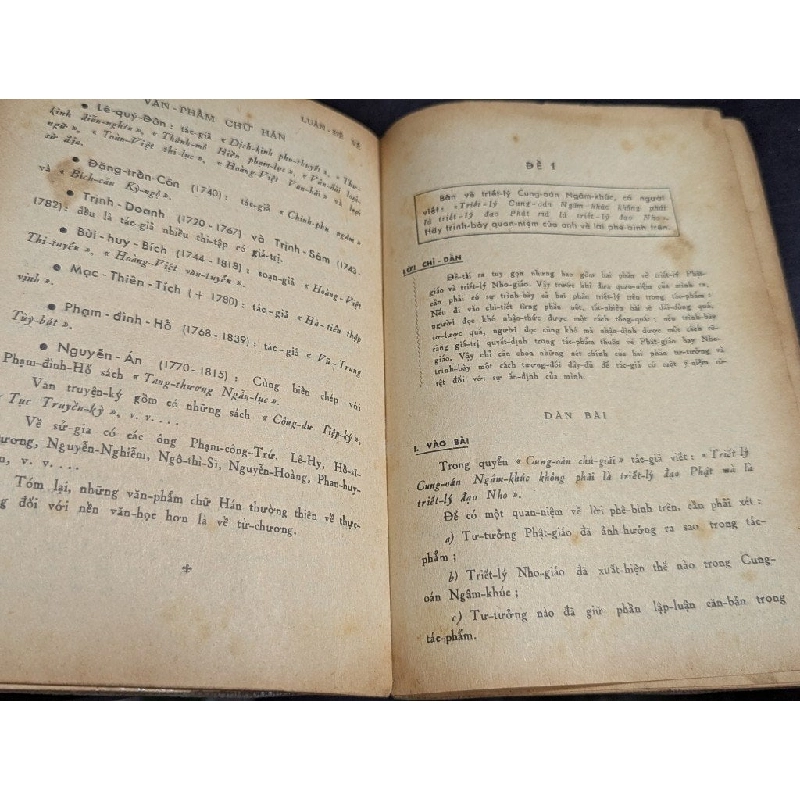 VĂN-PHẨM CHỮ HÁN LUẬN-ĐỀ VỀ
● Lê-quý-Đôn : tác-giả « Dịch-kinh phu-thuyết », « Thư-
kinh diễn-nghĩa », « Hiền phạm-lục », « Vân-đài loại-
ngữ », « Toàn-Việt thi-lục », « Hoàng-Việt Văn-hải » và loại
sử địa.
● Đặng-trần-Côn (1740) : tác-giả « Chinh-phu ngâm »
và « Bích-câu Kỳ-ngộ ».
● Trịnh-Doanh (1720-1767) và Trịnh-Sâm (1742-
1782) : đều là tác-giả nhiều thi-tập có giá-trị.
● Bùi-huy-Bích (1744-1818) : soạn-giả « Hoàng-Việt
Thi-tuyển », « Hoàng-Việt văn-tuyển ».
● Mạc-Thiên-Tích (+ 1780) : tác-giả « Hà-tiên thập
vịnh ».
● Phạm-đình-Hổ (1768-1839) : tác-giả « Vũ-Trung
Tùy-bút ».
● Nguyễn-Án (1770-1815) : Cùng biên chép với
Phạm-đình-Hổ sách « Tang-thương Ngẫu-lục ».
Văn truyện-ký gồm có những sách « Công-dư Tiệp-ký »,
« Tục Truyền-kỳ », v. v....
Về sử-gia có các ông Phạm-công-Trứ, Lê-Hy, Hồ-sĩ-
ương, Nguyễn-Nghiễm, Ngô-thì-Sĩ, Nguyễn-Hoàng, Phan-huy-
n, v. v....
Tóm lại, những văn-phẩm chữ Hán thường thiên về thực-
ng đối với nền văn-học hơn là về từ-chương.
+
ĐỀ 1
Bàn về triết-lý Cung-oán Ngâm-khúc, có người
viết : « Triết-lý Cung-oán Ngâm-khúc không phải
là triết-lý đạo Phật mà là triết-lý đạo Nho ».
Hãy trình-bày quan-niệm của anh về lời phê-bình trên.
LỜI CHỈ-DẪN
Đề-thi ra tuy gọn nhưng bao gồm hai phần về triết-lý Phật-
giáo và triết-lý Nho-giáo. Vậy trước khi đưa quan-niệm của mình ra,
cần phải có sự trình-bày cả hai phần triết-lý trên trong tác-phẩm :
Nếu đi vào chi-tiết từng phần một, tất-nhiên bài sẽ dài-dòng quá,
người đọc khó nhận-thức được một cách tổng-quát ; nếu trình-bày
sơ-lược quá, người đọc cũng khó mà nhận-định được một cách rõ-
ràng giá-trị quyết-định trong tác-phẩm thuộc về Phật-giáo hay Nho-
giáo. Vậy chỉ cần chọn những nét chính của hai phần tư-tưởng và
trình-bày một cách tương-đối đầy-đủ để tác-giả có một ý-niệm rõ-
rệt đối với sự ấn-định của mình.
DÀN BÀI
I. VÀO BÀI
Trong quyển « Cung-oán chú-giải » tác-giả viết : « Triết-lý
Cung-oán Ngâm-khúc không phải là triết-lý đạo Phật mà là
triết-lý đạo Nho ».
Để có một quan-niệm về lời phê-bình trên, cần phải xét :
a) Tư-tưởng Phật-giáo đã ảnh-hưởng ra sao trong tác-
phẩm ;
b) Triết-lý Nho-giáo đã xuất-hiện thế nào trong Cung-
oán Ngâm-khúc ;
c) Tư-tưởng nào đã giữ phần lập-luận căn-bản trong
tác-phẩm.